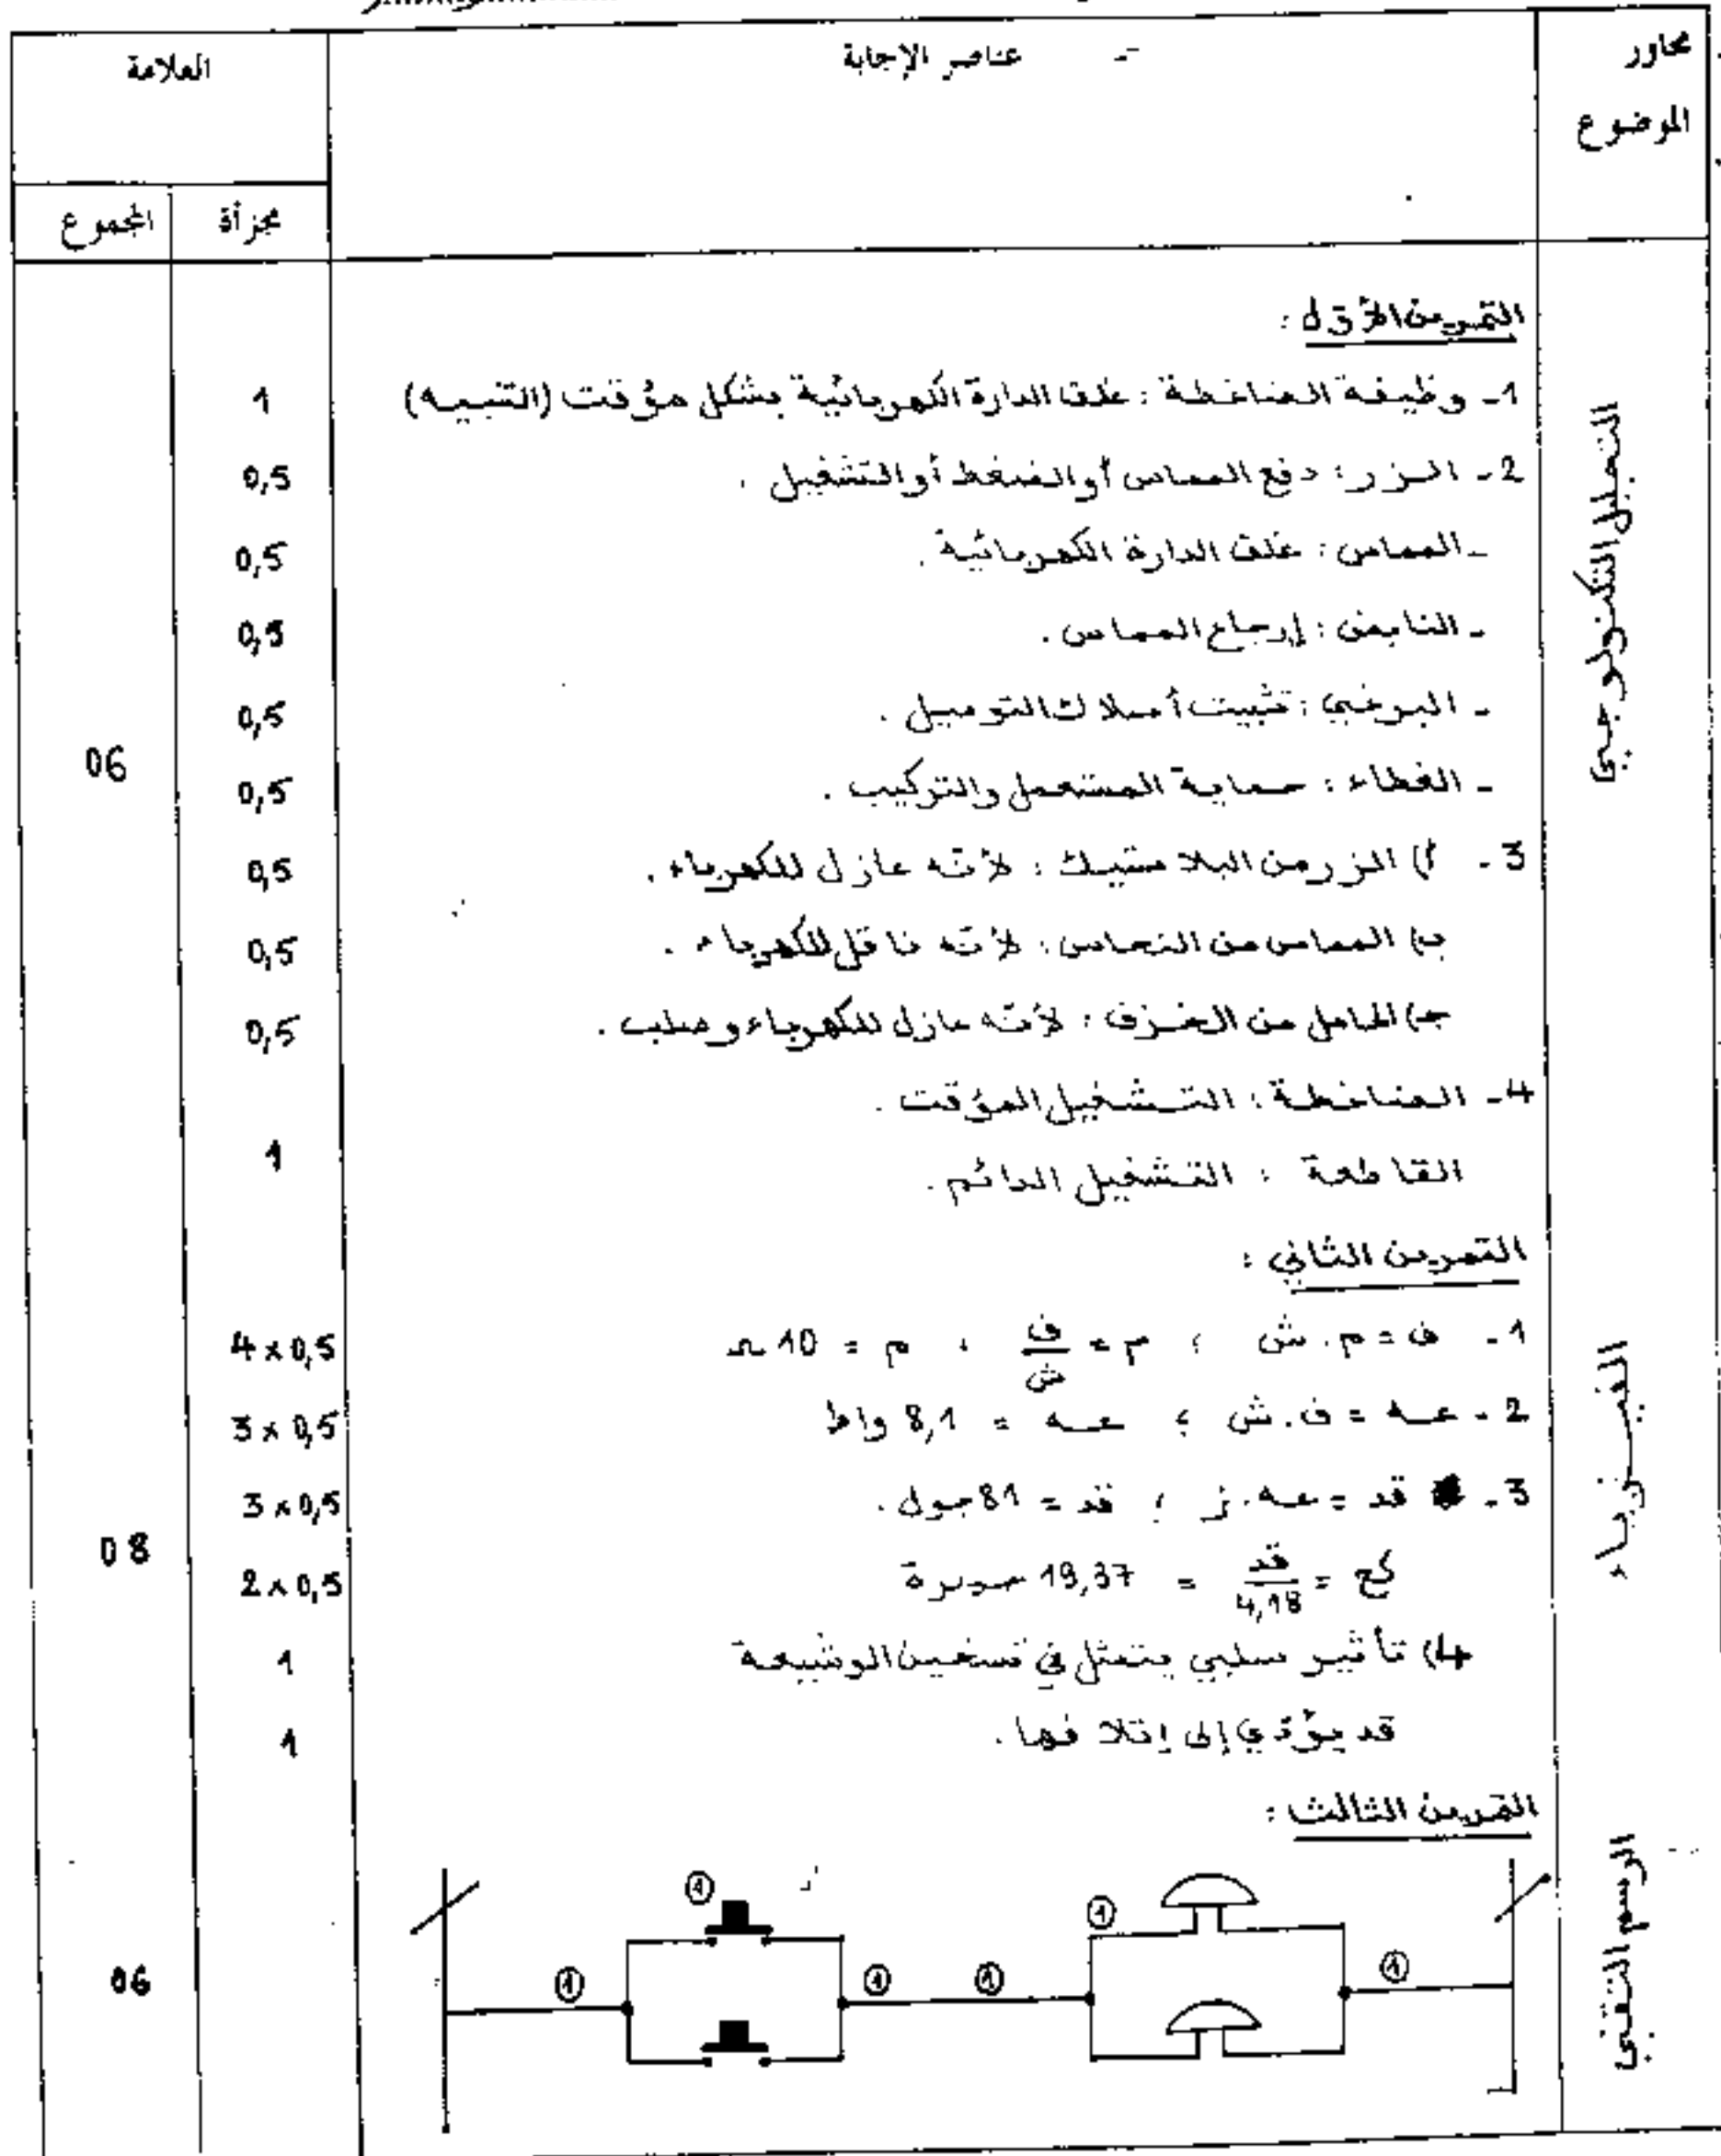 محاور الموضوع
عناصر الإجابة
العلامة
مجزأة
المجموع
التحليل التكنولوجي
التمرين الأول :
1- وظيفة الضاغطة : غلق الدارة الكهربائية بشكل مؤقت (التنبيه)
1
2- الزر : دفع المماس أو الضغط أو التشغيل .
0,5
- المماس : غلق الدارة الكهربائية .
0,5
- النابض : إرجاع المماس .
0,5
- البرغي : تثبيت أسلاك التوصيل .
0,5
- الغطاء : حماية المستعمل والتركيب .
0,5
06
3- أ) الزر من البلاستيك : لأنّه عازل للكهرباء .
0,5
ب) المماس من النحاس : لأنّه ناقل للكهرباء .
0,5
ج) الحامل من الخزف : لأنّه عازل للكهرباء و صلب .
0,5
4- الضاغطة : التشغيل المؤقت .
القاطعة : التشغيل الدائم .
1
الفيزياء
التمرين الثاني :
1- ف = م . ش ؛ م = ف/ش ، م = 10 Ω
4 x 0,5
2- عه = ف . ش ؛ عه = 8,1 واط
3 x 0,5
3- قد = عه . ز ؛ قد = 81 جول .
3 x 0,5
كح = قد/4,18 = 19,37 حريرة
2 x 0,5
08
4) تأثير سلبي يتمثل في تسخين الوشيعة
1
قد يؤدي إلى إتلافها .
1
الرسم التقني
التمرين الثالث :
1
1
1
1
1
1
06